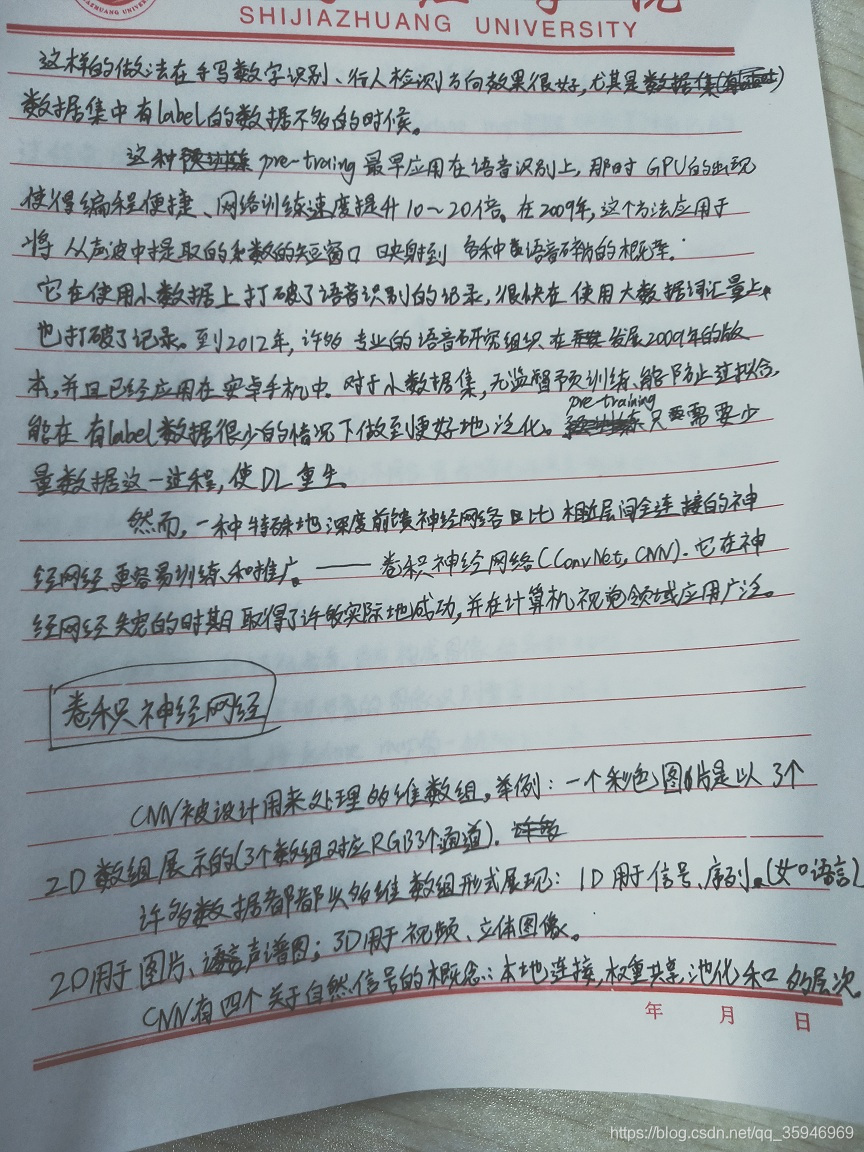 SHIJIAZHUANG UNIVERSITY
这样的做法在手写数字识别、行人检测方向效果很好,尤其是数据集
数据集中有label的数据不多的的时候。
这种 pre-traing 最早应用在语音识别上,那时 GPU的出现
使得编程便捷、网络训练速度提升10~20倍。在2009年,这个方法应用于
将 从声波中提取的系数的短窗口 映射到 各种语音碎片的概率.
它在使用小数据上打破了语音识别的记录,很快在使用大数据词汇量上
也打破了记录。到2012年,许多 专业的语音研究组织 在发展2009年的版
本,并且已经应用在安卓手机中. 对于小数据集,无监督预训练能防止过拟合,
能在 有label数据很少的情况下做到更好地泛化。pre-training只需要少
量数据这一过程,使DL重生.
然而,一种特殊地深度前馈神经网络 比 相近层间全连接的神
经网经 更容易训练和推广。—— 卷积神经网络(ConvNet, CNN). 它在神
经网经失宠的时期取得了许多实际地成功,并在计算机视觉领域应用广泛。
卷积神经网经
CNN被设计用来处理多维数组。举例:一个彩色图片是以 3个
2D数组展示的(3个数组对应RGB3个通道).
许多数据都都以多维数组形式展现: 1D用于信号、序列.(如语言)
2D用于图片、声谱图; 3D用于视频、立体图像。
CNN有四个关于自然信号的概念:本地连接,权重共享,池化和 多层次.
年 月 日
https://blog.csdn.net/qq_35946969